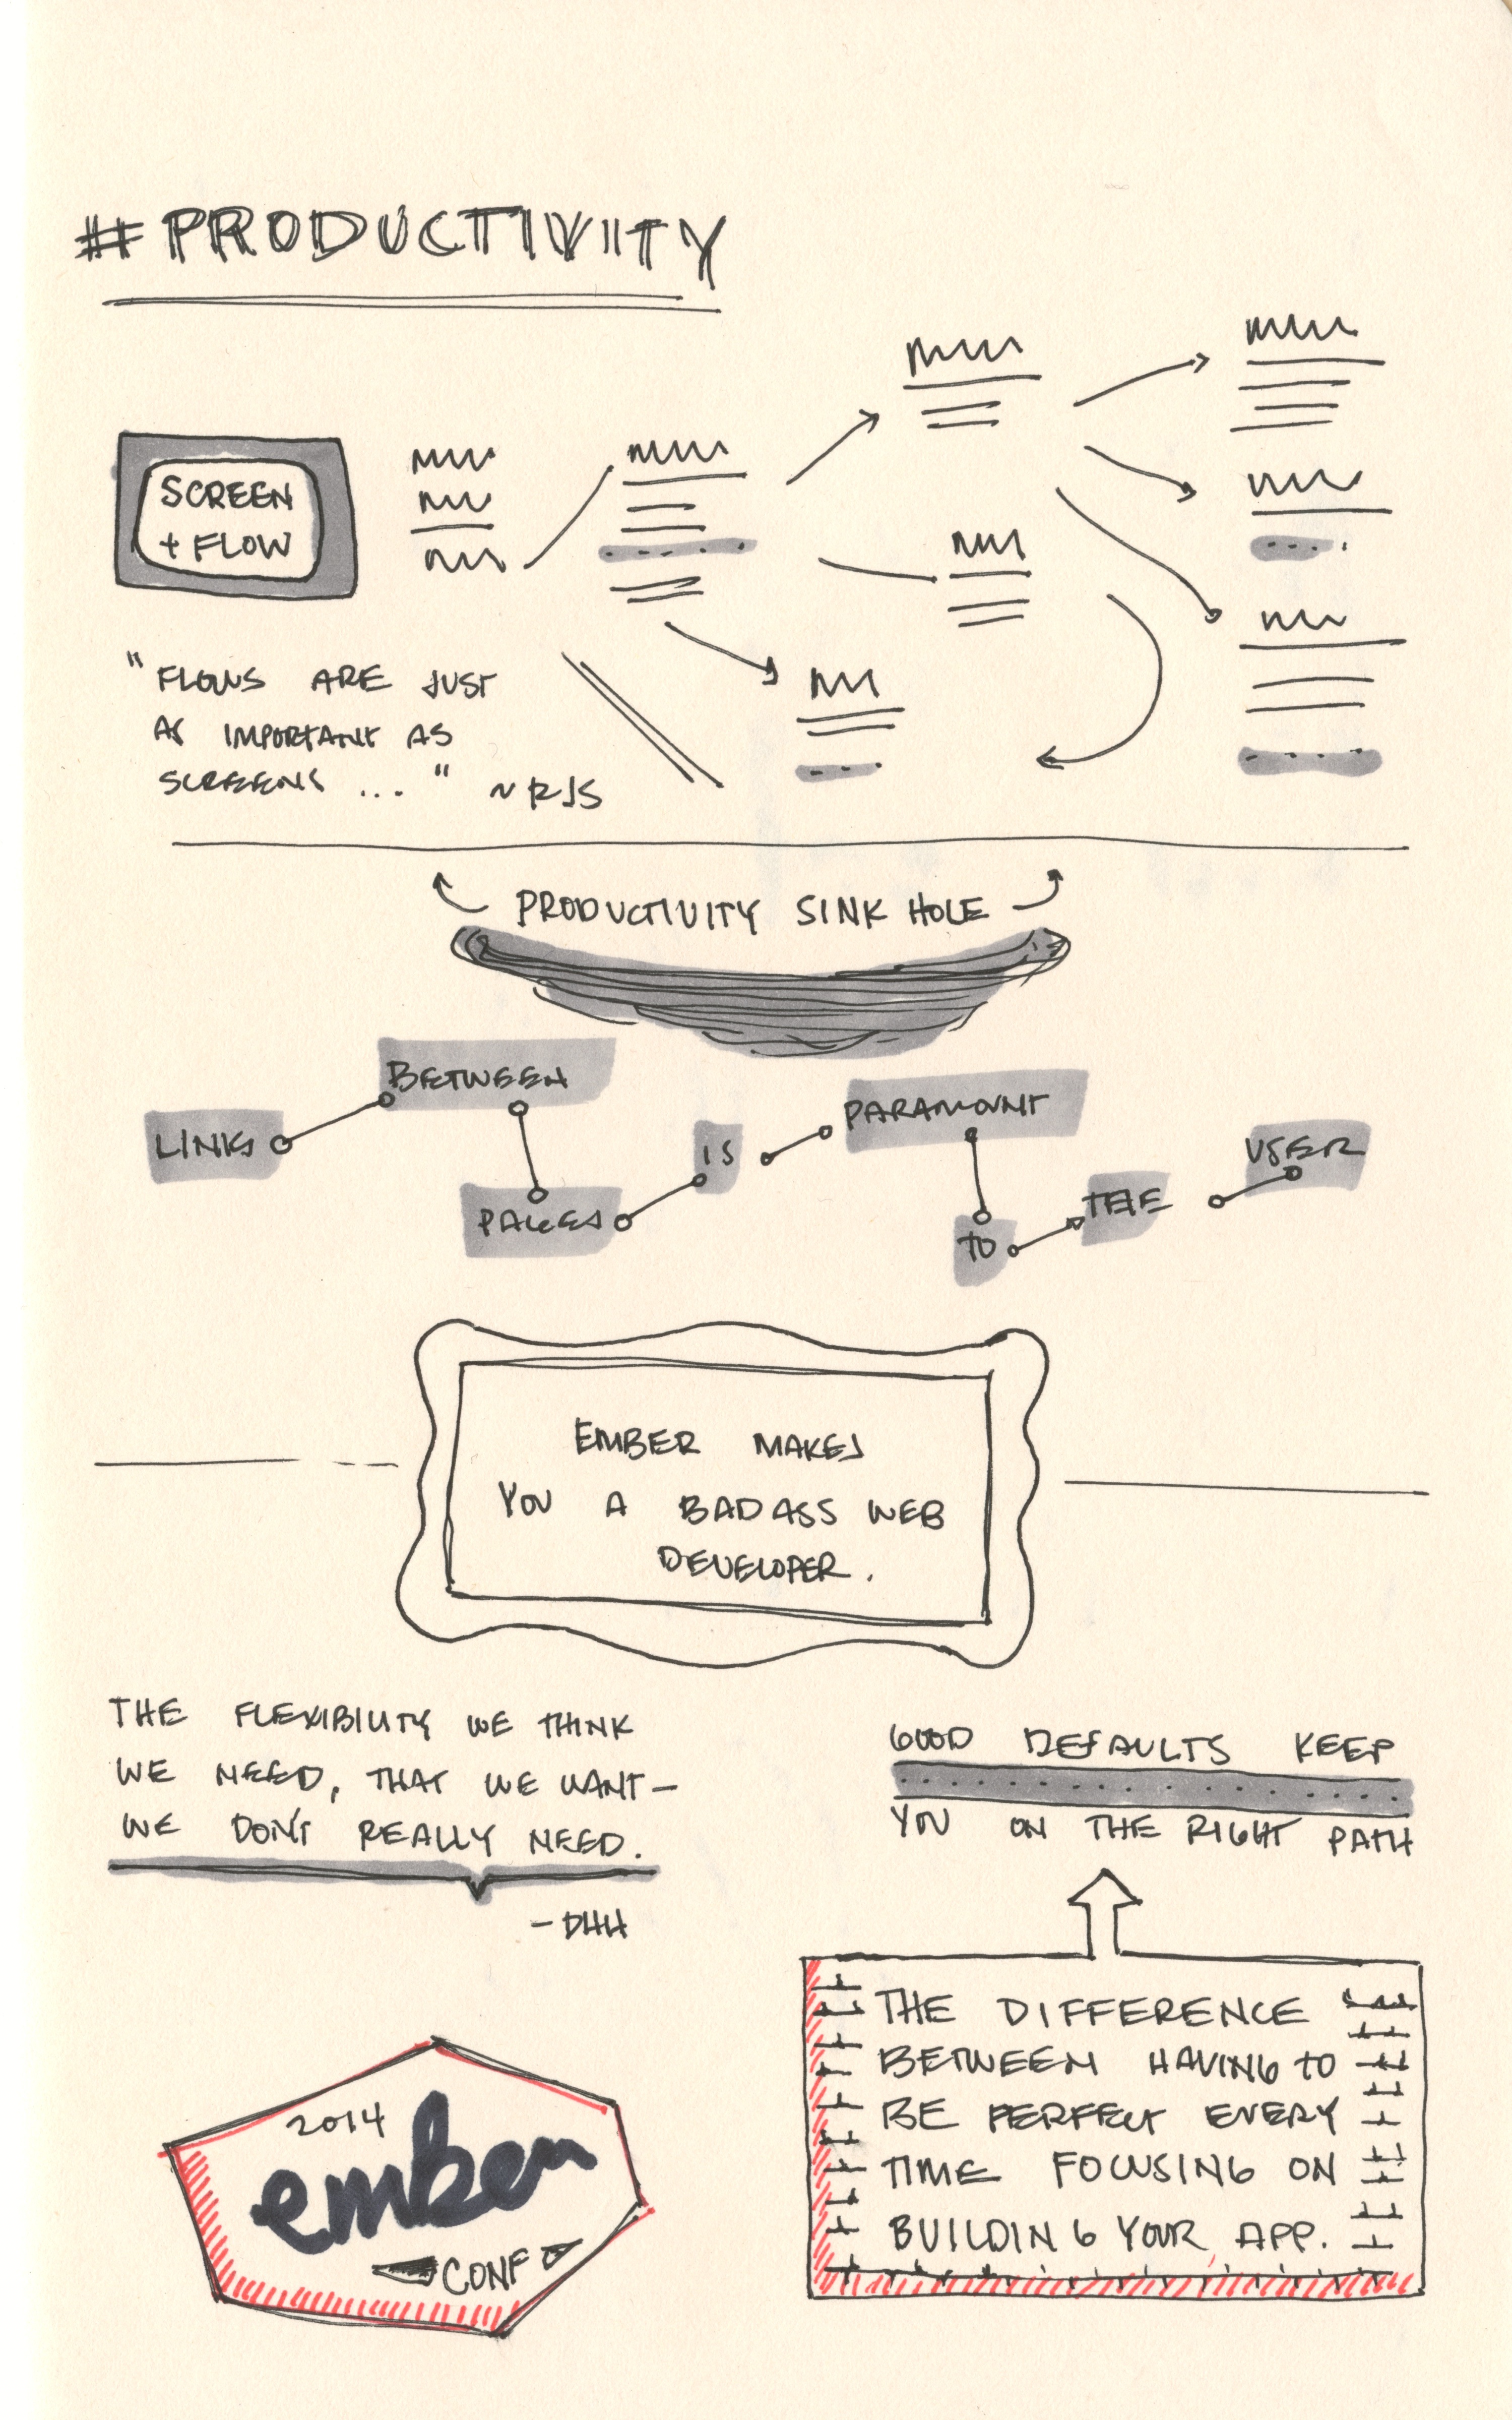 #PRODUCTIVIITY
SCREEN
+ FLOW
"FLOWS ARE JUST
AS IMPORTANT AS
SCREENS ..." ~ RJS
PRODUCTIVITY SINK HOLE
LINKS BETWEEN PAGES IS PARAMOUNT TO THE USER
EMBER MAKES
YOU A BADASS WEB
DEVELOPER.
THE FLEXIBILITY WE THINK
WE NEED, THAT WE WANT—
WE DON'T REALLY NEED.
— DHH
GOOD DEFAULTS KEEP
YOU ON THE RIGHT PATH
THE DIFFERENCE
BETWEEN HAVING TO
BE PERFECT EVERY
TIME FOCUSING ON
BUILDING YOUR APP.
2014
ember
CONF